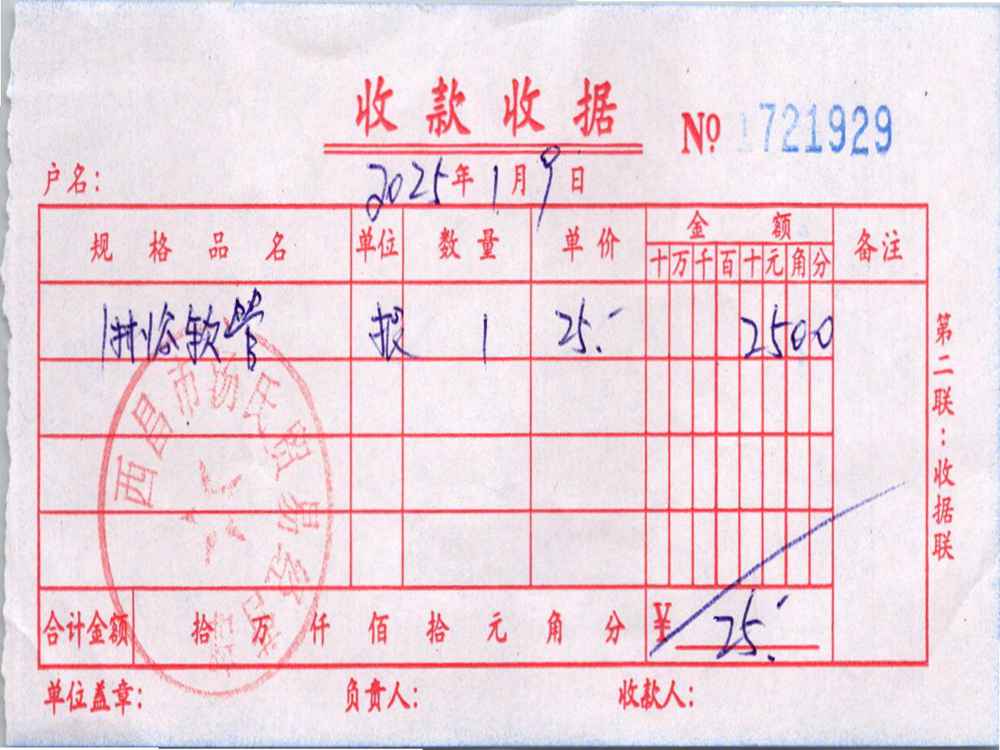 收款收据
№ 1721929
户名： 2025年1月9日
规格品名 单位 数量 单价 金额 备注
十万千百十元角分
软管 根 1 25.- 2500
合计金额 拾万仟佰拾元角分 ¥ 25.-
单位盖章： 负责人： 收款人：
第二联：收据联
西昌市杨氏贸易经营部